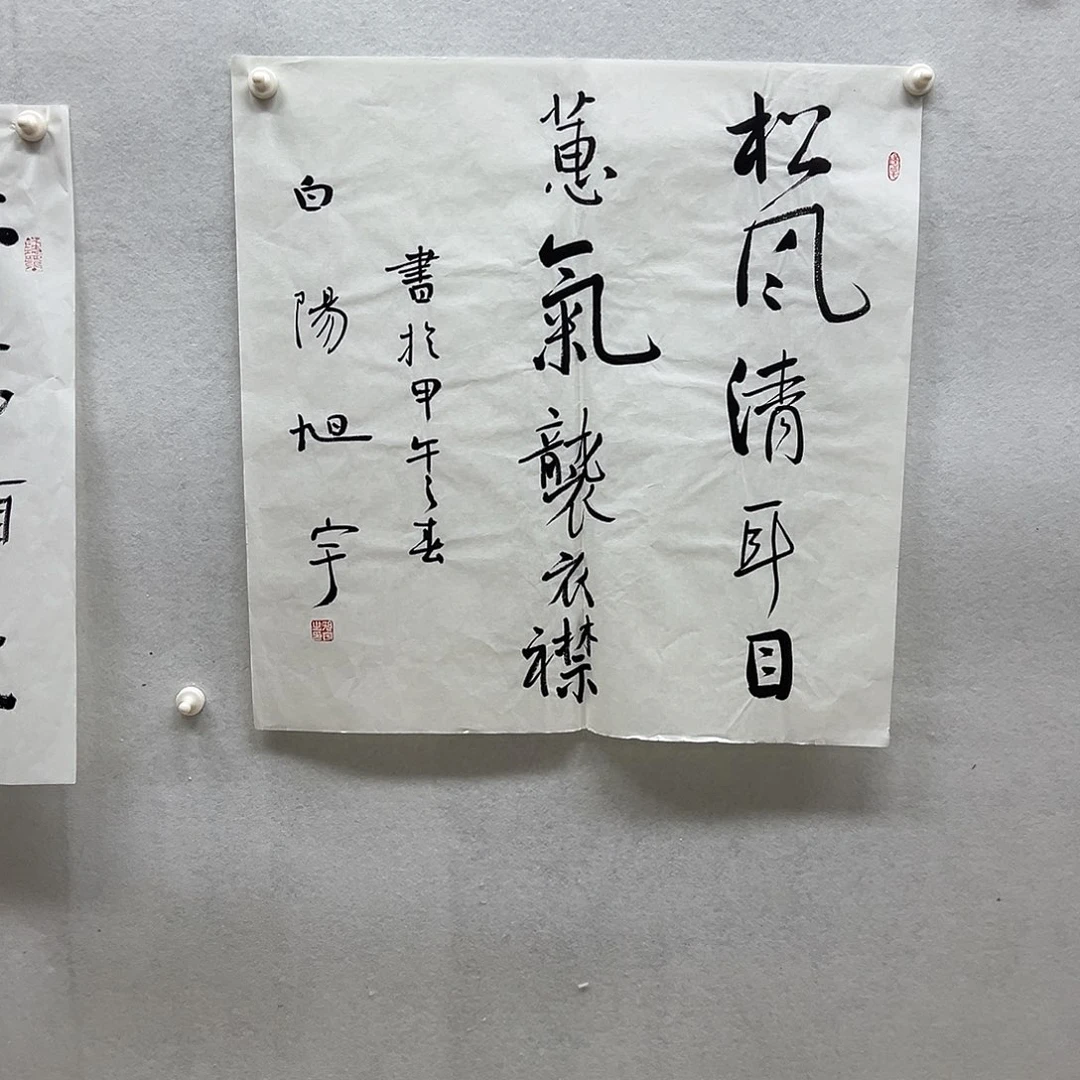 松风清耳目
蕙氣襲衣襟
書於甲午之春
白陽旭宇